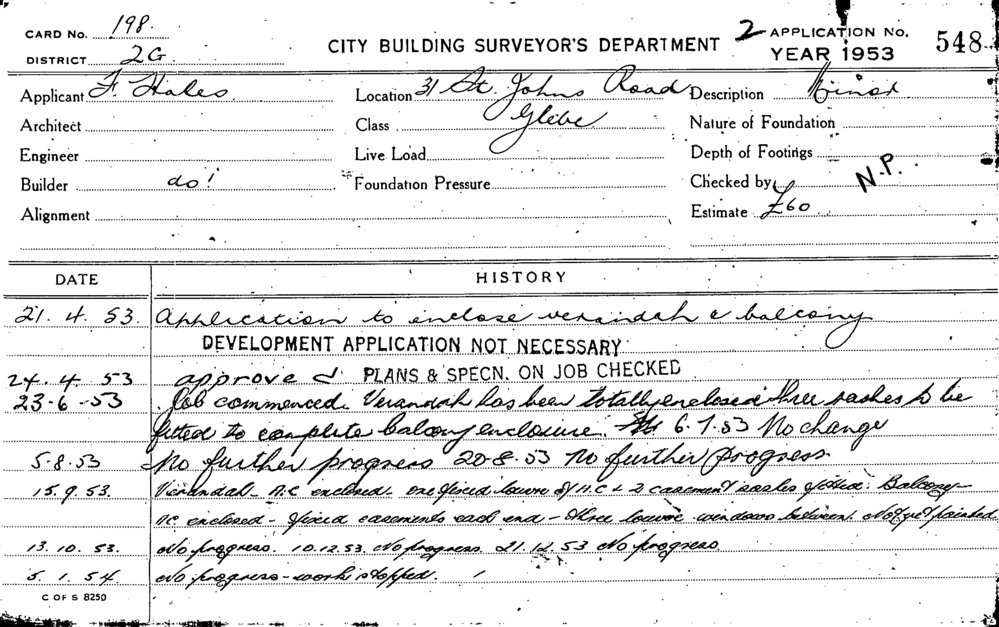 CARD No. 198. CITY BUILDING SURVEYOR'S DEPARTMENT 2 APPLICATION No. 548
DISTRICT 2G. YEAR 1953
Applicant F. Hales Location 31 St. Johns Road Description Minor
Architect Class Glebe Nature of Foundation
Engineer Live Load Depth of Footings
Builder do! Foundation Pressure Checked by N.P.
Alignment Estimate £60
DATE HISTORY
21. 4. 53. Application to enclose verandah & balcony
DEVELOPMENT APPLICATION NOT NECESSARY
24. 4. 53 approved PLANS & SPECN. ON JOB CHECKED
23-6-53 Job commenced. Verandah has been totally enclosed three sashes to be
fitted to complete balcony enclosure. 6.7.53 No change
5.8.53 No further progress 20-8-53 No further progress
15.9.53. Verandah - A.C enclosed - one fixed louvre & 2 casement sashes fitted. Balcony
AC enclosed - fixed casements each end - three louvre windows between. Not yet painted
13.10.53. No progress. 10.12.53. No progress. 21.12.53 No progress.
5.1.54 No progress - work stopped.
C OF S 8250